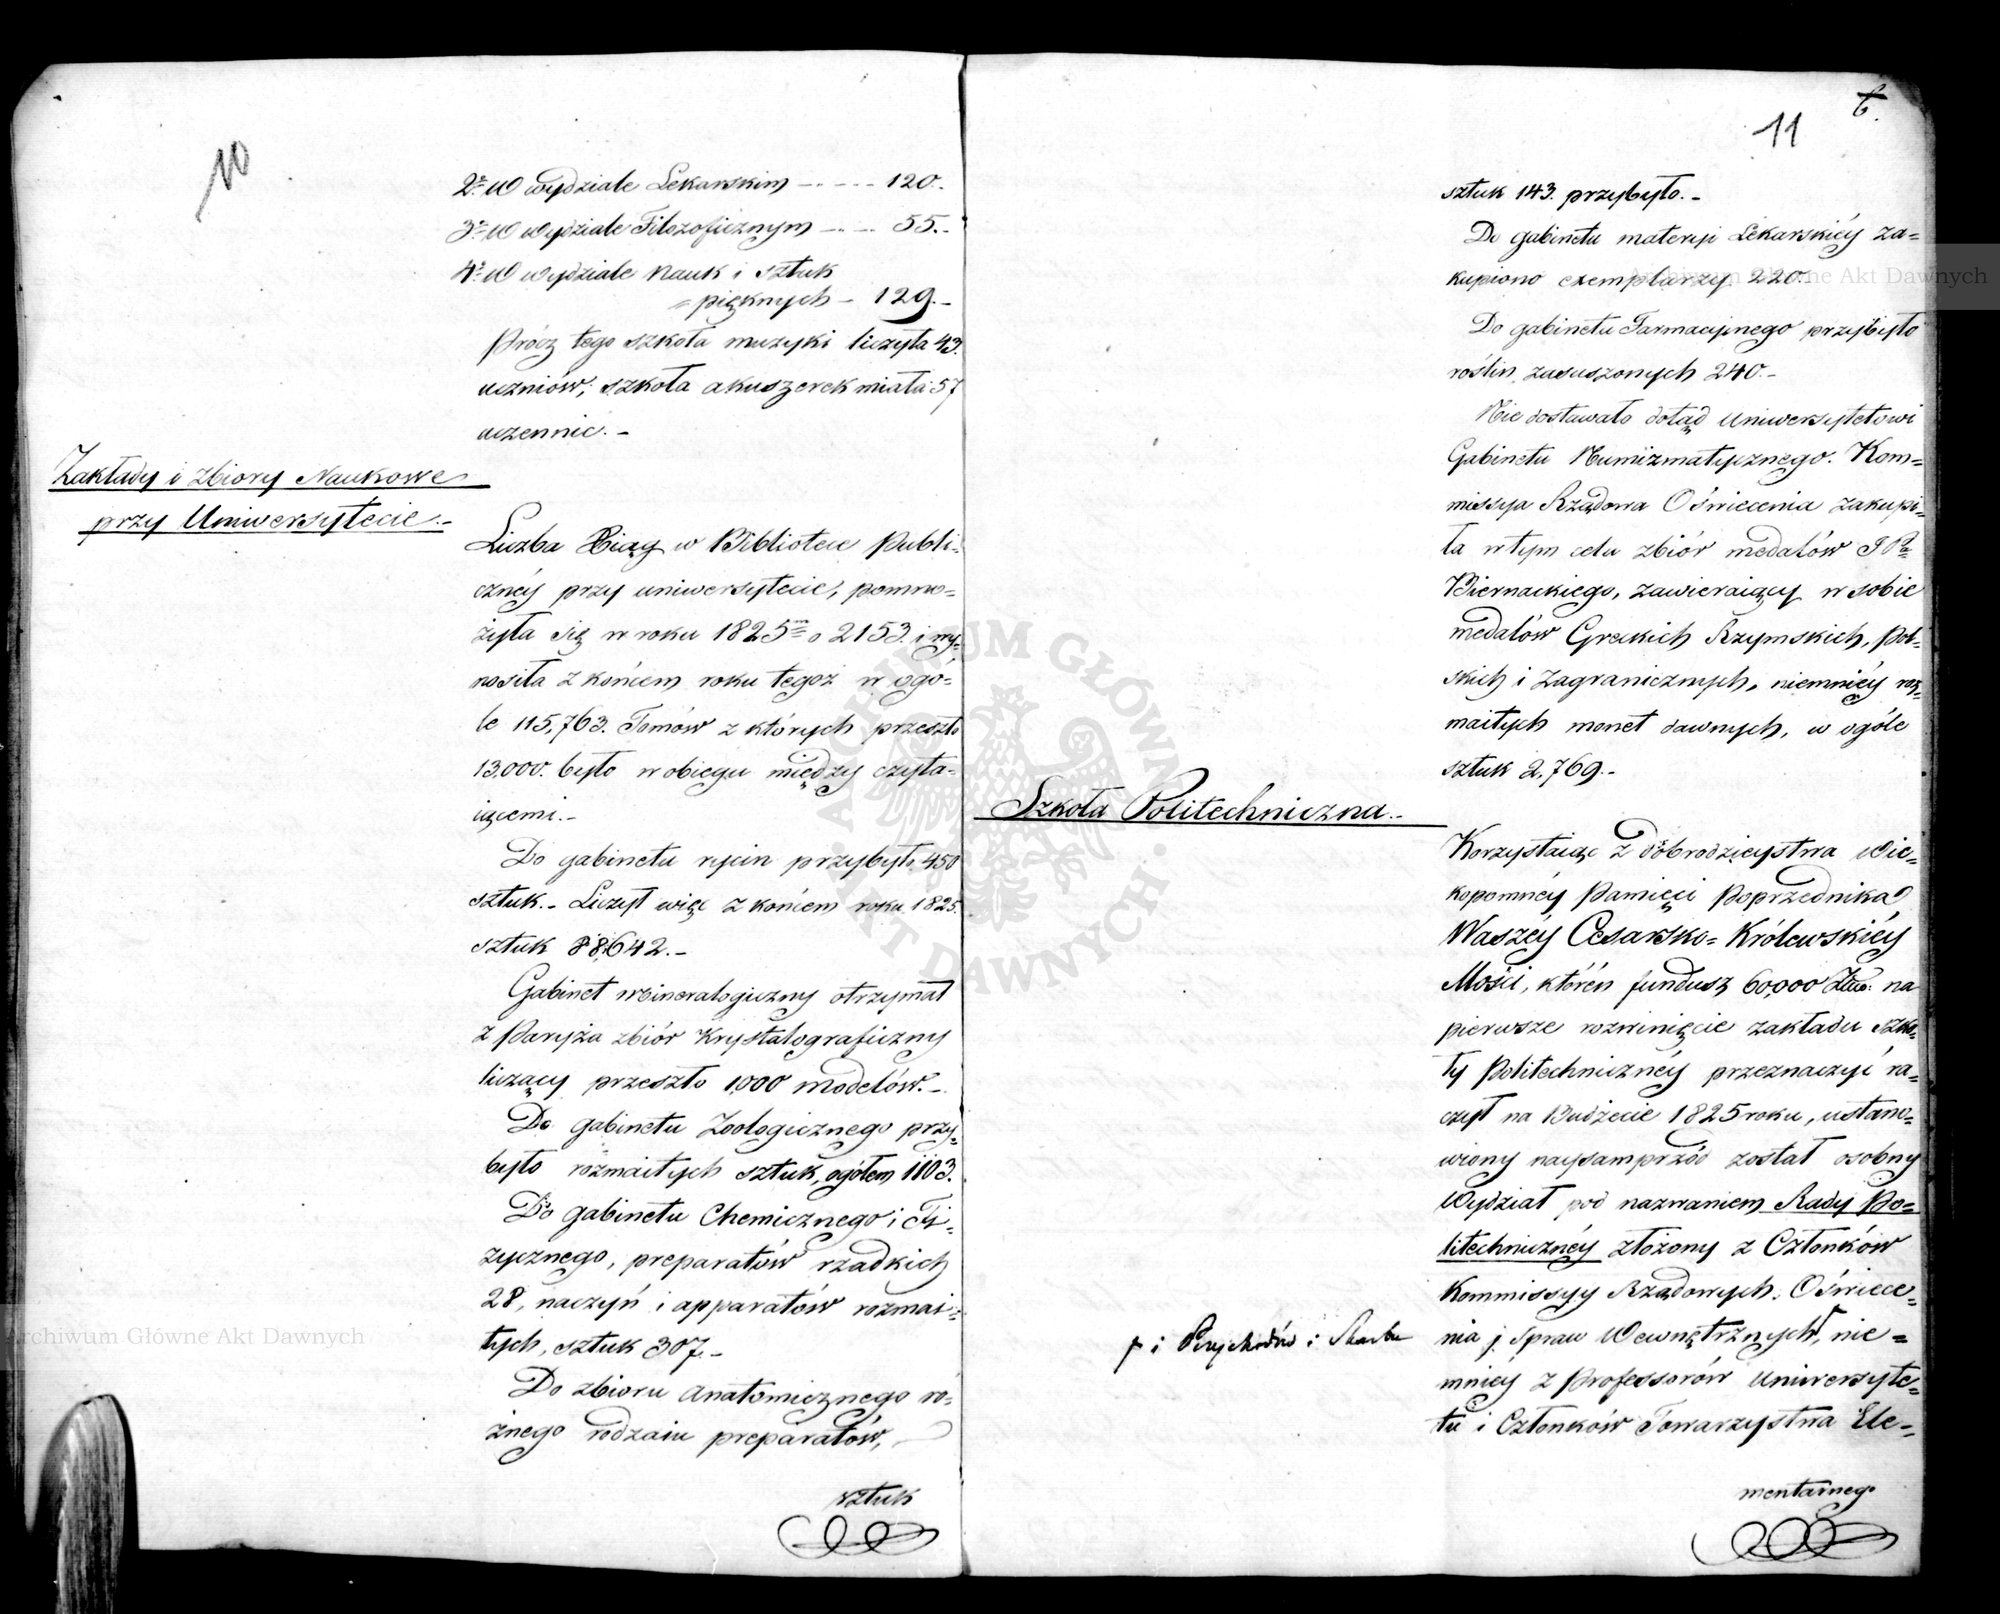 10
2re W wydziale Lekarskim - - - - - 120.
3e W wydziale Filozoficznym - - - - 55.-
4e W wydziale Nauk i sztuk
= pięknych - 129.-
Prócz tego szkoła muzyki liczyła 43.
uczniów; szkoła akuszerek miała 57
uczennic.-
Zakłady i Zbiory Naukowe
przy Uniwersytecie.-
Liczba Xiąg w Bibliotece Publi-
cznéy przy uniwersytecie, pomno-
żyła się w roku 1825m o 2153. i wy-
nosiła z końcem roku tegoż w ogó-
le 115,763. Tomów z których przeszło
13,000. było w obiegu między czyta-
iącemi.-
Do gabinetu rycin przybyło 450
sztuk.- Liczył więc z końcem roku 1825.
sztuk 88,642.-
Gabinet mineralogiczny otrzymał
z Paryża zbiór Krystalograficzny
liczący przeszło 1,000 modelów.-
Do gabinetu Zoologicznego przy-
było rozmaitych sztuk, ogółem 1103.
Do gabinetu Chemicznego i Fi-
zycznego, preparatów rzadkich
28, naczyń i apparatów rozmai-
tych, sztuk 307.-
Do zbioru Anatomicznego ró-
żnego rodzaiu preparatów,
sztuk
11
6.
sztuk 143. przybyło.-
Do gabinetu materyi Lekarskiéy za-
kupiono exemplarzy 220.-
Do gabinetu Farmacyinego przybyło
roślin zasuszonych 240.-
Nie dostawało dotąd Uniwersytetowi
Gabinetu Numizmatycznego. Kom-
missya Rządowa Oświecenia zakupi-
ła w tym celu zbiór medalów
Biernackiego, zawieraiący w sobie
medalów Greckich Rzymskich, Pol-
skich i Zagranicznych, niemniéy roz-
maitych monet dawnych, w ogóle
sztuk 2,769.-
Szkoła Politechniczna.-
Korzystaiąc z dobrodzieystwa Wie-
kopomnéy Pamięci Poprzednika
Waszéy Cesarsko-Królewskiéy
Mości, któren fundusz 60,000 Złłp: na
pierwsze rozwinięcie zakładu Szko-
ły Politechnicznéy przeznaczyć ra-
czył na Budżecie 1825 roku, ustano-
wiony naysamprzód został osobny
Wydział pod nazwaniem Rady Po-
litechnicznéy złożony z Członków
Kommissyy Rządowych: Oświece-
nia i Spraw Wewnętrznych, nie-
i Przychodów i Skarbu
mniéy z Professorów Uniwersyte-
tu i Członków Towarzystwa Ele-
mentarnego
ARCHIWUM GŁÓWNE AKT DAWNYCH
Archiwum Główne Akt Dawnych
Archiwum Główne Akt Dawnych